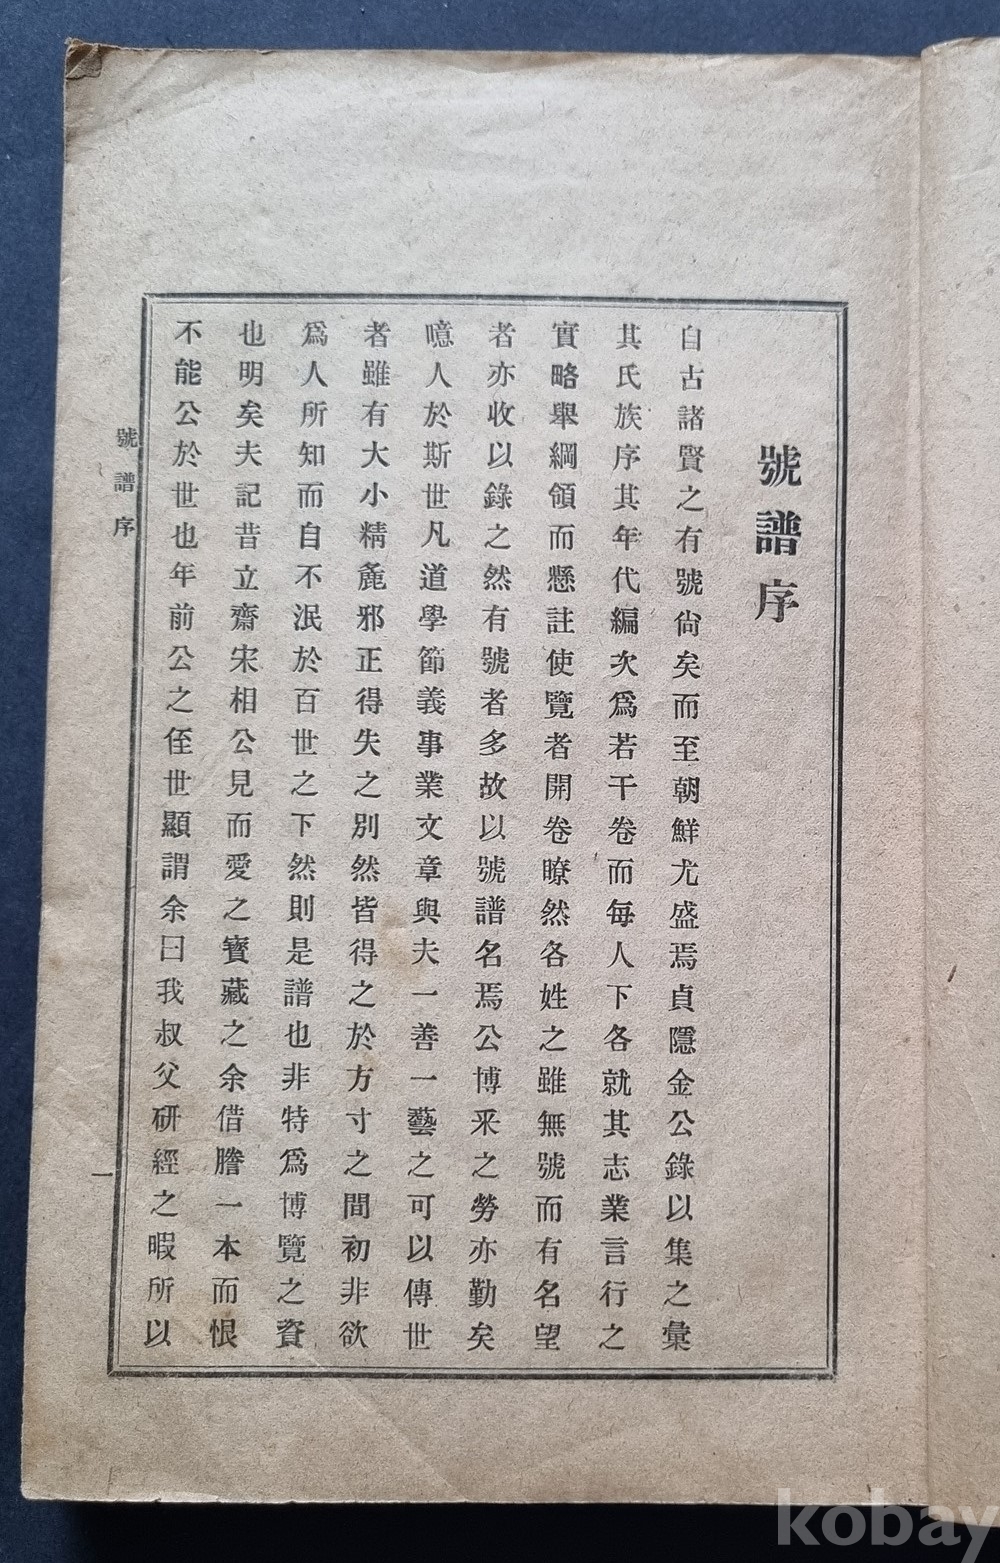 號譜序
自古諸賢之有號尙矣而至朝鮮尤盛焉貞隱金公錄以集之彙
其氏族序其年代編次爲若干卷而每人下各就其志業言行之
實略舉綱領而懸註使覽者開卷瞭然各姓之雖無號而有名望
者亦收以錄之然有號者多故以號譜名焉公博釆之勞亦勤矣
噫人於斯世凡道學節義事業文章與夫一善一藝之可以傳世
者雖有大小精麁邪正得失之別然皆得之於方寸之間初非欲
爲人所知而自不泯於百世之下然則是譜也非特爲博覽之資
也明矣夫記昔立齋宋相公見而愛之寶藏之余借謄一本而恨
不能公於世也年前公之侄世顯謂余曰我叔父硏經之暇所以
號譜序
一
kobay